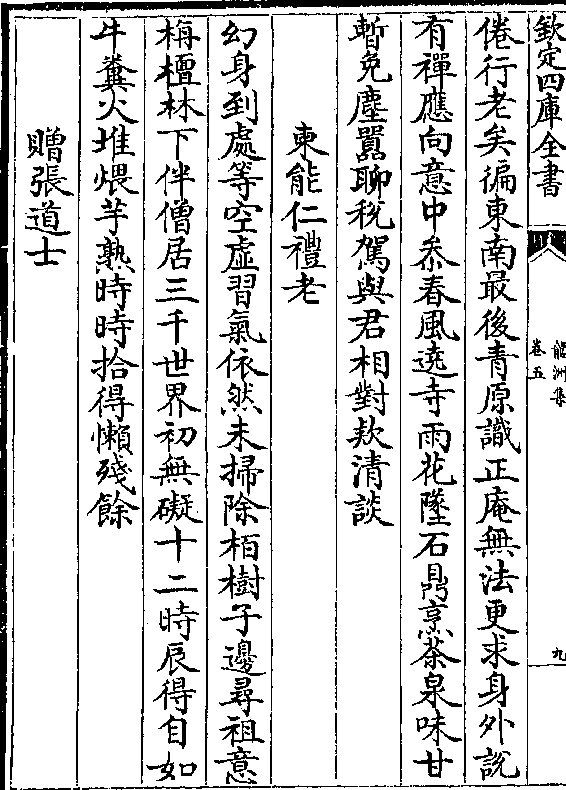 欽定四庫全書
龍洲集
卷五
九
倦行老矣徧東南最後青原識正庵無法更求身外說
有禪應向意中叅春風遶寺雨花墜石鼎烹茶泉味甘
暫免塵囂聊稅駕與君相對欵清談
柬能仁禮老
幻身到處等空虛習氣依然未掃除栢樹子邊尋祖意
栴檀林下伴僧居三千世界初無礙十二時辰得自如
牛糞火堆煨芋熟時時拾得懶殘餘
贈張道士